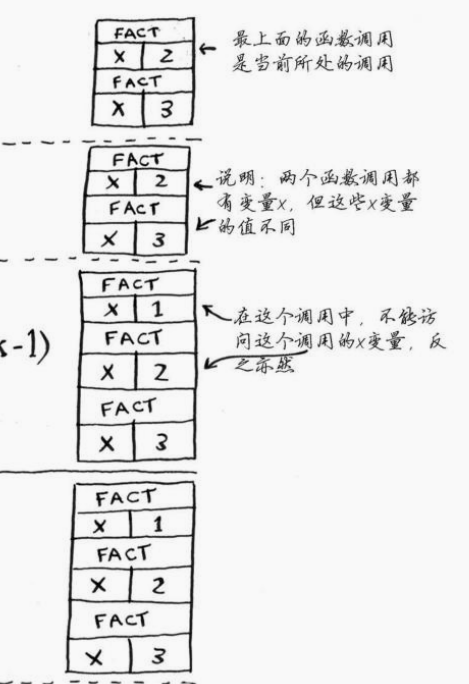 FACT
X 2
FACT
X 3
最上面的函数调用
是当前所处的调用
FACT
X 2
FACT
X 3
说明：两个函数调用都
有变量X，但这些X变量
的值不同
-1)
FACT
X 1
FACT
X 2
FACT
X 3
在这个调用中，不能访
问这个调用的X变量，反
之亦然
FACT
X 1
FACT
X 2
FACT
X 3